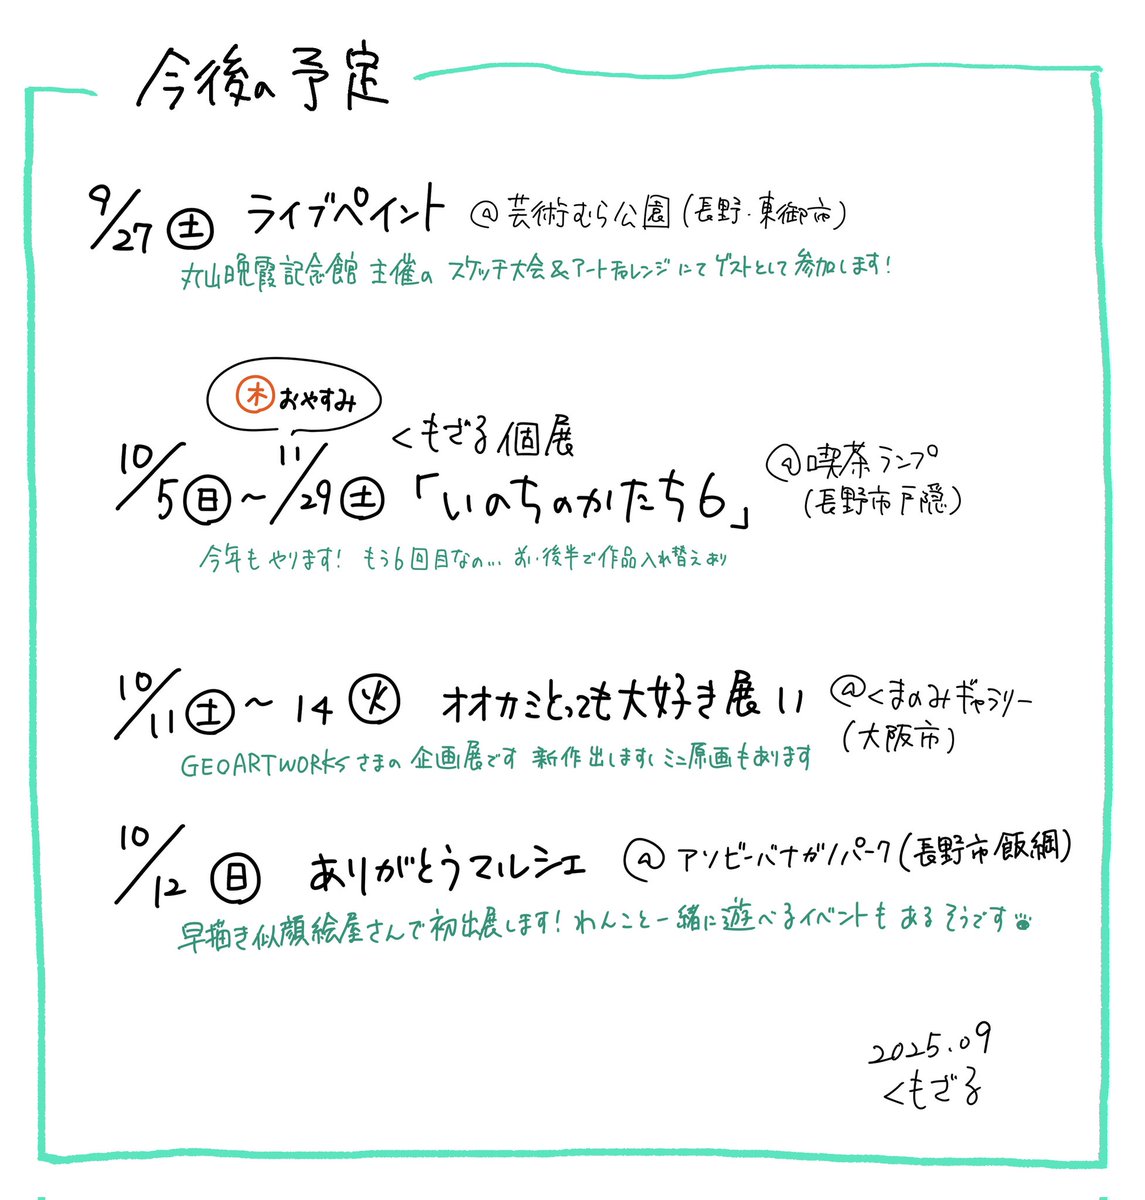 今後の予定
9/27㊏ ライブペイント @芸術むら公園(長野・東御市)
丸山晩霞記念館 主催の スケッチ大会&アートチャレンジにてゲストとして参加します!
㊍おやすみ
くもざる個展
10/5㊐〜11/29㊏ 「いのちのかたち6」 @喫茶ランプ
(長野市戸隠)
今年もやります! もう6回目なの… 前・後半で作品入れ替えあり
10/11㊏〜14㊋ オオカミとっても大好き展11 @くまのみギャラリー
(大阪市)
GEOARTWORKSさまの企画展です 新作出しますし ミニ原画もあります
10/12㊐ ありがとうマルシェ @アソビーバナガノパーク(長野市飯綱)
早描き似顔絵屋さんで初出展します! わんこと一緒に遊べるイベントも あるそうです
2025.09
くもざる